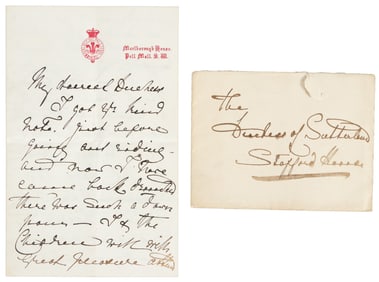 Marlborough House.
Pall Mall. S.W.
My dearest Duchess
I got yr. kind
note. just before
going out riding -
and now I have
come back
there was such a down
pour - I & the
Children will with
great pleasure
The
Duchess of Sutherland
Stafford House